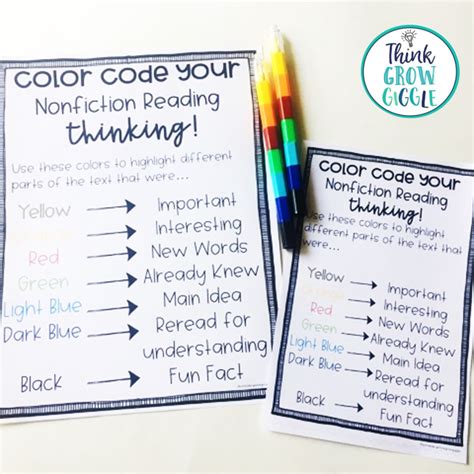 Think
GROW
GIGGLE
COLOR CODE YOUR
Nonfiction Reading
thinking!
Use these colors to highlight different
parts of the text that were...
Yellow → Important
Orange → Interesting
Red → New Words
Green → Already Knew
Light Blue → Main Idea
Dark Blue → Reread for
understanding
Black → Fun Fact
COLOR CODE YOUR
Nonfiction Reading
thinking!
Use these colors to highlight
different parts of the text that
were...
Yellow → Important
Orange → Interesting
Red → New Words
Green → Already Knew
Light Blue → Main Idea
Dark Blue → Reread for
understanding
Black → Fun Fact